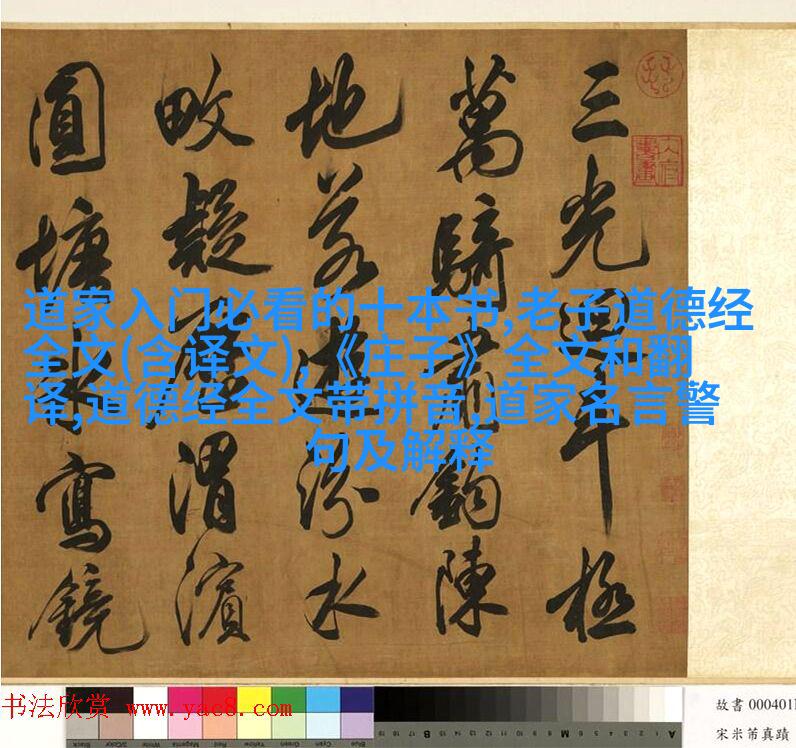 三光回斗極
萬騎肅鉤陳
地若遊汾水
畋疑歷渭濱
圓塘冰寫鏡
道家入门必看的十本书,老子道德经
全文(含译文),《庄子》全文和翻
译,道德经全文带拼音,道家名言警
句及解释
书法欣赏 www.yac8.com
故書 000401
宋米芾真蹟